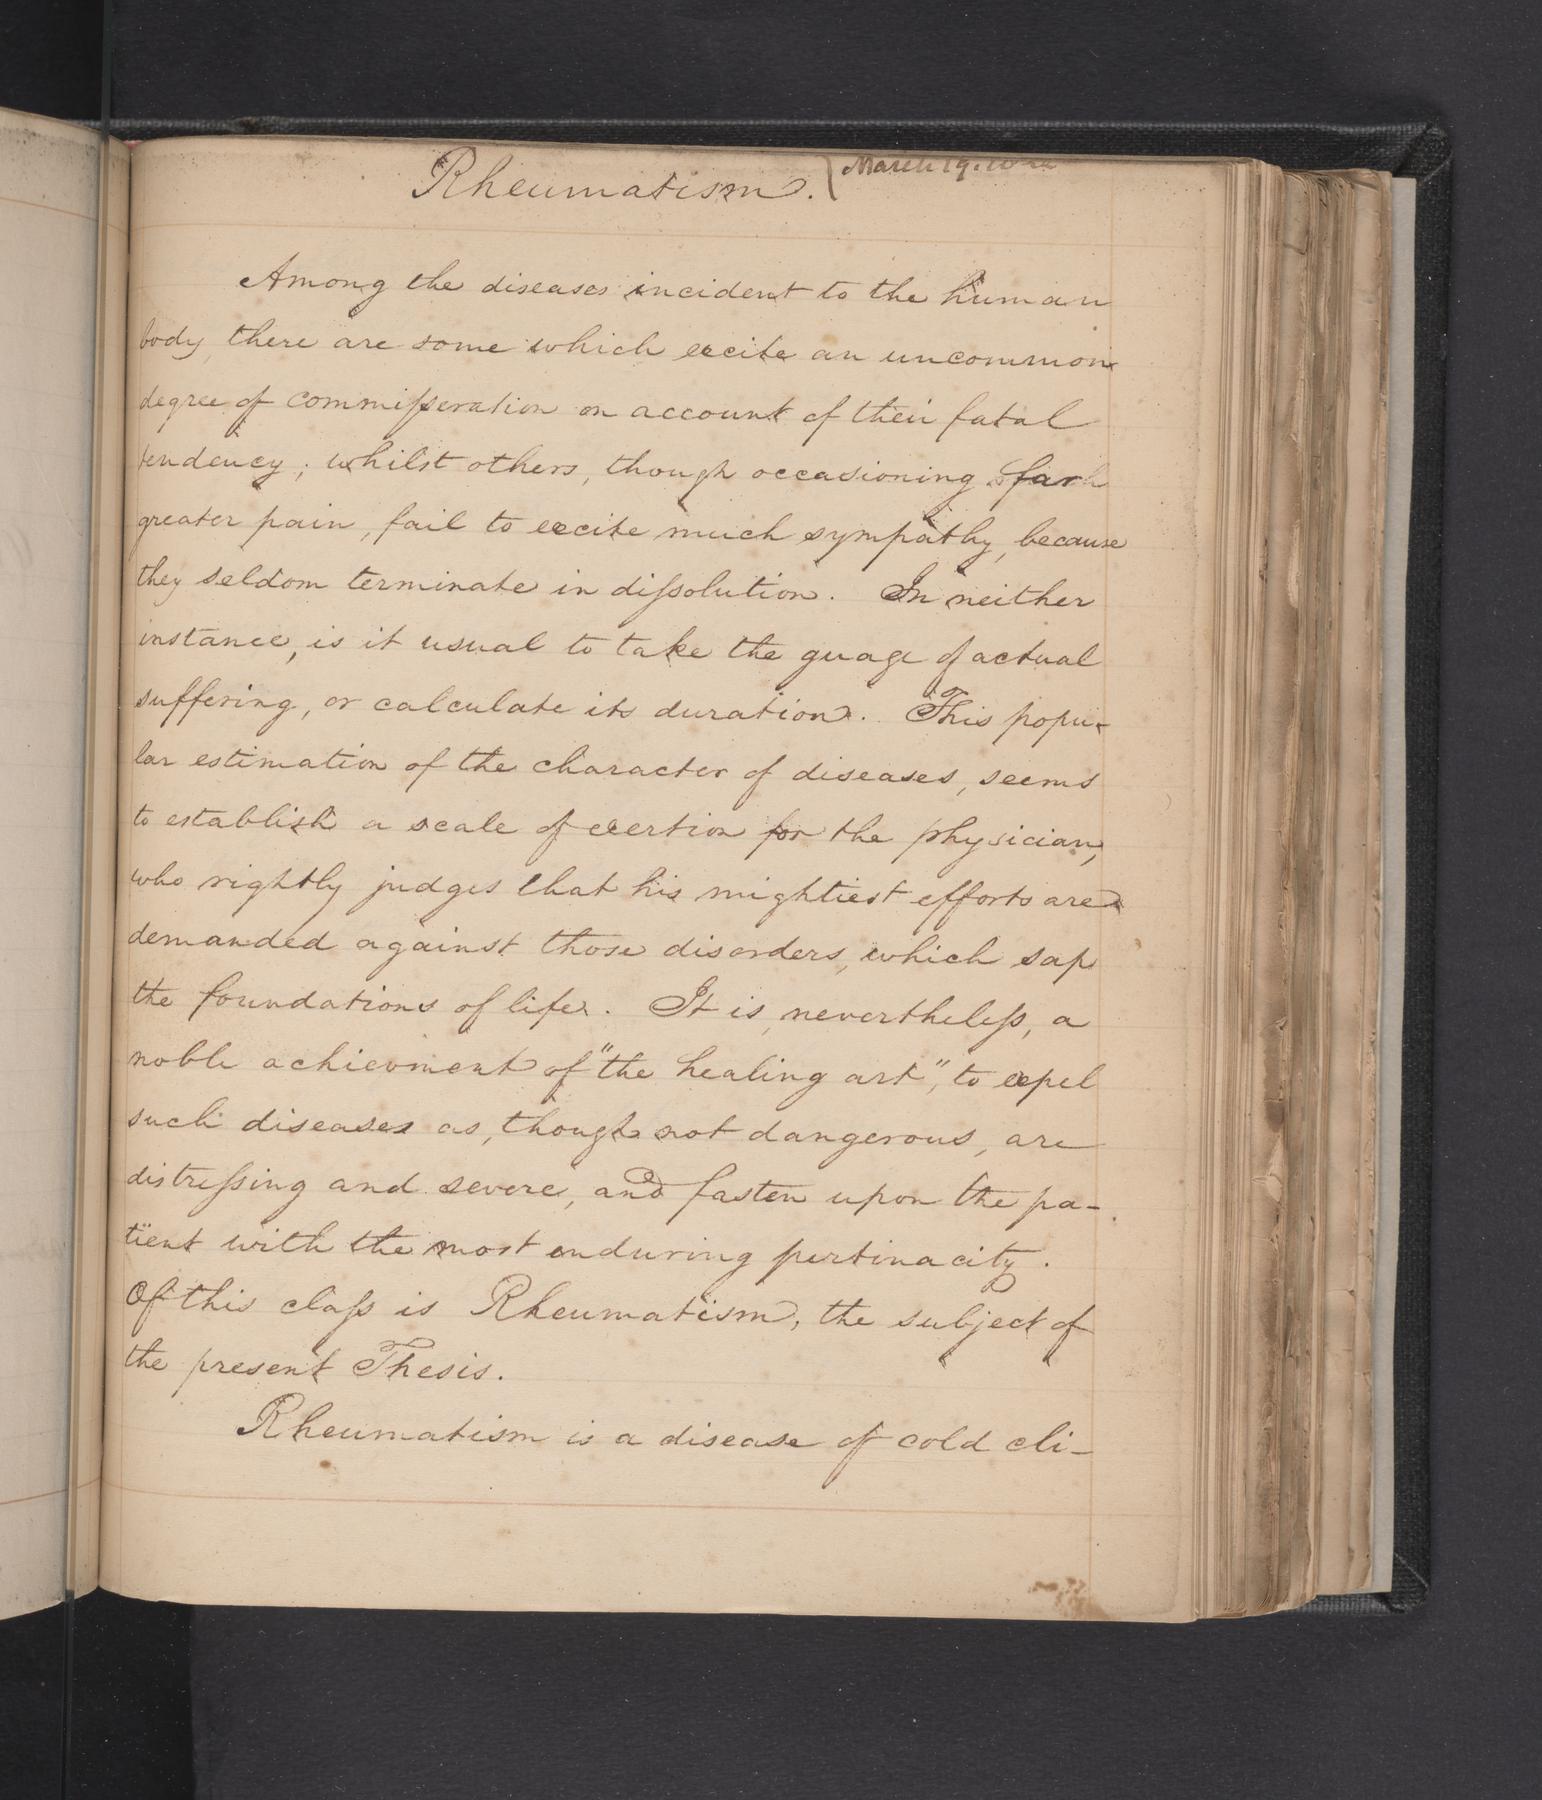 Rheumatism. March 19.
Among the diseases incident to the human
body, there are some which excite an uncommon
degree of commisseration on account of their fatal
tendency; whilst others, though occasioning far
greater pain, fail to excite much sympathy, because
they seldom terminate in dissolution. In neither
instance, is it usual to take the guage of actual
suffering, or calculate its duration. This popu-
lar estimation of the character of diseases, seems
to establish a scale of exertion for the physician,
who rightly judges that his mightiest efforts are
demanded against those disorders, which sap
the foundations of life. It is, nevertheless, a
noble achievment of "the healing art", to expel
such diseases as, though not dangerous, are
distressing and severe, and fasten upon the pa-
tient with the most enduring pertinacity.
Of this class is Rheumatism, the subject of
the present Thesis.
Rheumatism is a disease of cold cli-